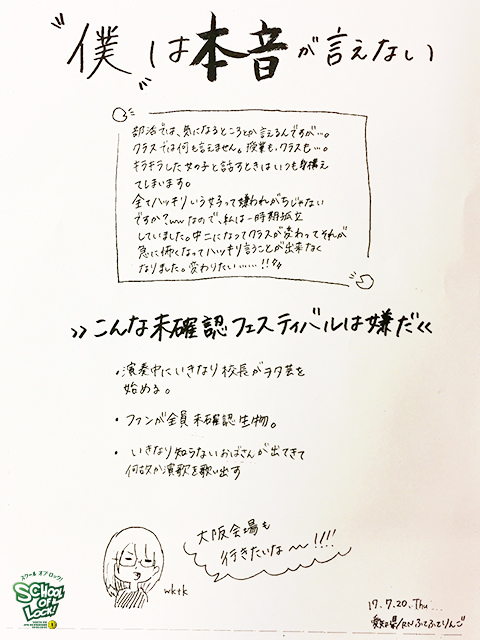 "僕"は本音が言えない
部活では、気になるところとか言えるんですが…。
クラスでは何も言えません。授業も、クラスも…。
キラキラした女の子と話すときはいつも身構え
てしまいます。
全てハッキリいう女子って嫌われがちじゃない
ですか?wwなので、私は一時期孤立
していました。中二になってクラスが変わってそれが
急に怖くなってハッキリ言うことが出来なく
なりました。変わりたい……!!
>>こんな未確認フェスティバルは嫌だ<<
・演奏中にいきなり校長がヲタ芸を
始める。
・ファンが全員未確認生物。
・いきなり知らないおばさんが出てきて
何故か演歌を歌い出す
大阪会場も
行きたいな〜!!!!
wktk
スクール オブ ロック!
SCHOOL
OF
LOCK!
17.7.20.Thu...
愛知県/RNふてふてりんご